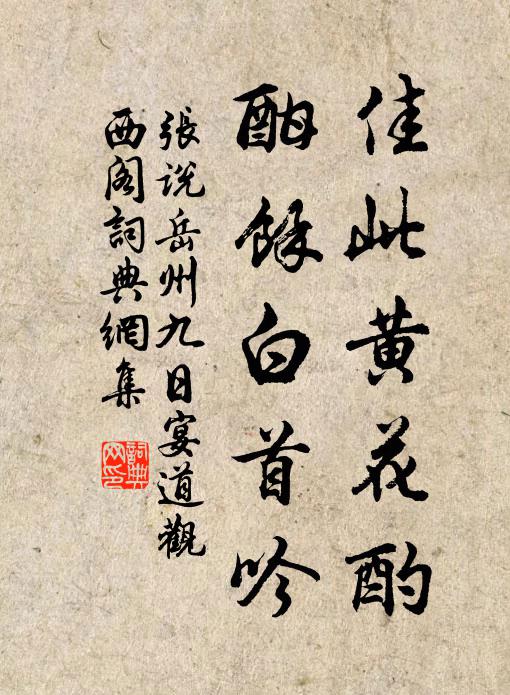 佳此黄花酌
酣餘白首吟
張説岳州九日宴道觀
西阁詞典網集
詞典网印